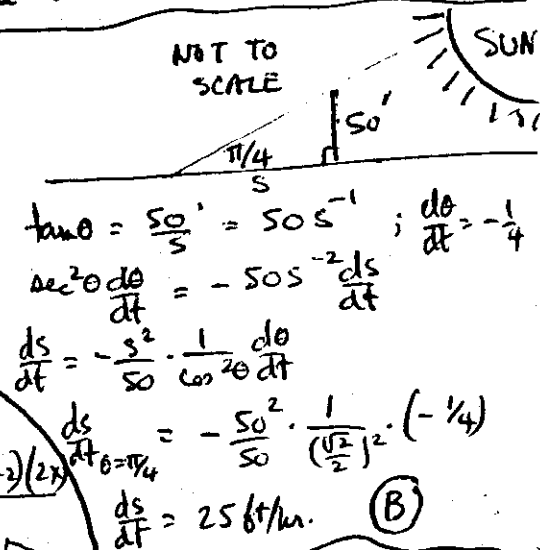 NOT TO
SCALE
SUN
50'
π/4
S
tanθ = 50'/s = 50s⁻¹ ; dθ/dt = -1/4
sec²θ dθ/dt = -50s⁻² ds/dt
ds/dt = -s²/50 · 1/cos²θ dθ/dt
ds/dt θ=π/4 = -50²/50 · 1/(√2/2)² · (-1/4)
-2)(2x)
ds/dt = 25 ft/hr. (B)